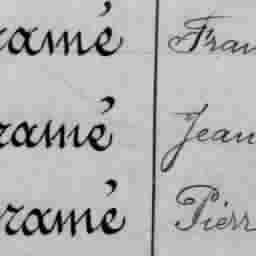 ramé Fran
ramé Jean
ramé Pierr